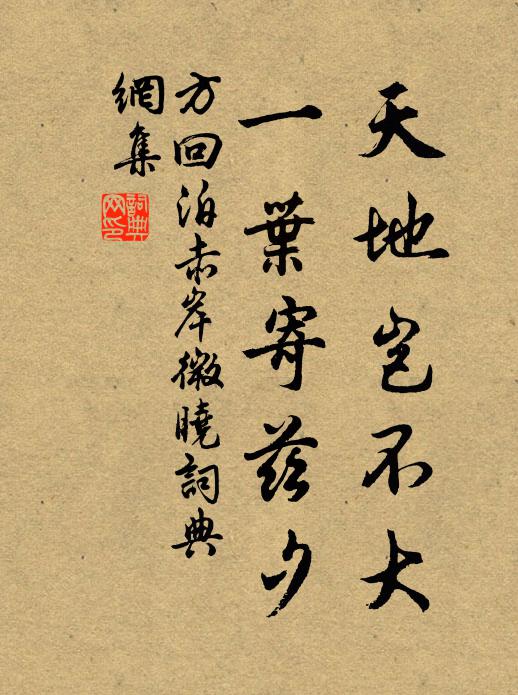 天地岂不大
一葉寄茲夕
方回泊赤岸微曉詞典
網集
詞典网印